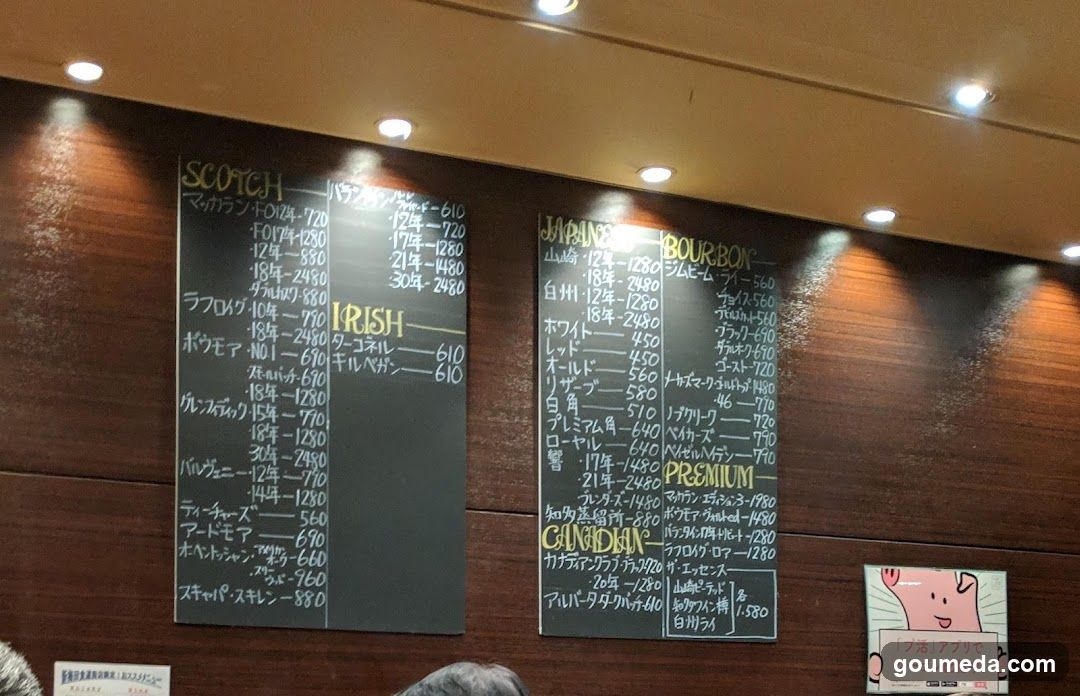 SCOTCH
マッカラン・FO12年-720
FO17年-1280
12年-880
18年-2480
ダブルカスク-880
ラフロイグ・10年-790
18年-2480
ボウモア・NO.1-690
スモールバッチ-690
18年-1280
グレンフィディック・15年-790
18年-1280
30年-2480
バルヴェニー・12年-790
14年-1280
ティーチャーズ-560
アードモア-690
オーヘントッシャン・アメリカンオーク-660
スリーウッド-960
スキャパ・スキレン-880
バランタイン
-610
12年-720
17年-1280
21年-1480
30年-2480
IRISH
ターコネル-610
キルベガン-610
JAPANESE
山崎・12年-1280
18年-2480
白州・12年-1280
18年-2480
ホワイト-450
レッド-450
オールド-560
リザーブ-580
白角-510
プレミアム角-640
ローヤル-640
響・17年-1480
21年-2480
ブレンダーズ-1480
知多蒸留所-880
CANADIAN
カナディアンクラブ・ブラック-720
20年-1280
アルバータ・ダークバッチ-610
BOURBON
ジムビーム・ライ-560
チョイス-560
デビルズカット-560
ブラック-690
ダブルオーク-690
ゴースト-720
メーカーズマーク・ゴールドトップ-1480
・46-790
ノブクリーク-720
ベイカーズ-790
ベイゼルヘイデン-790
PREMIUM
マッカラン・エディション3-1980
ボウモア・ヴォルトed-1480
バランタイン17年トリビュート-1280
ラフロイグ・ロア-1280
ザ・エッセンス
山崎ピーテッド
知多ワイン樽
白州ライ
各
1.580
「ブ活」アプリで
goumeda.com